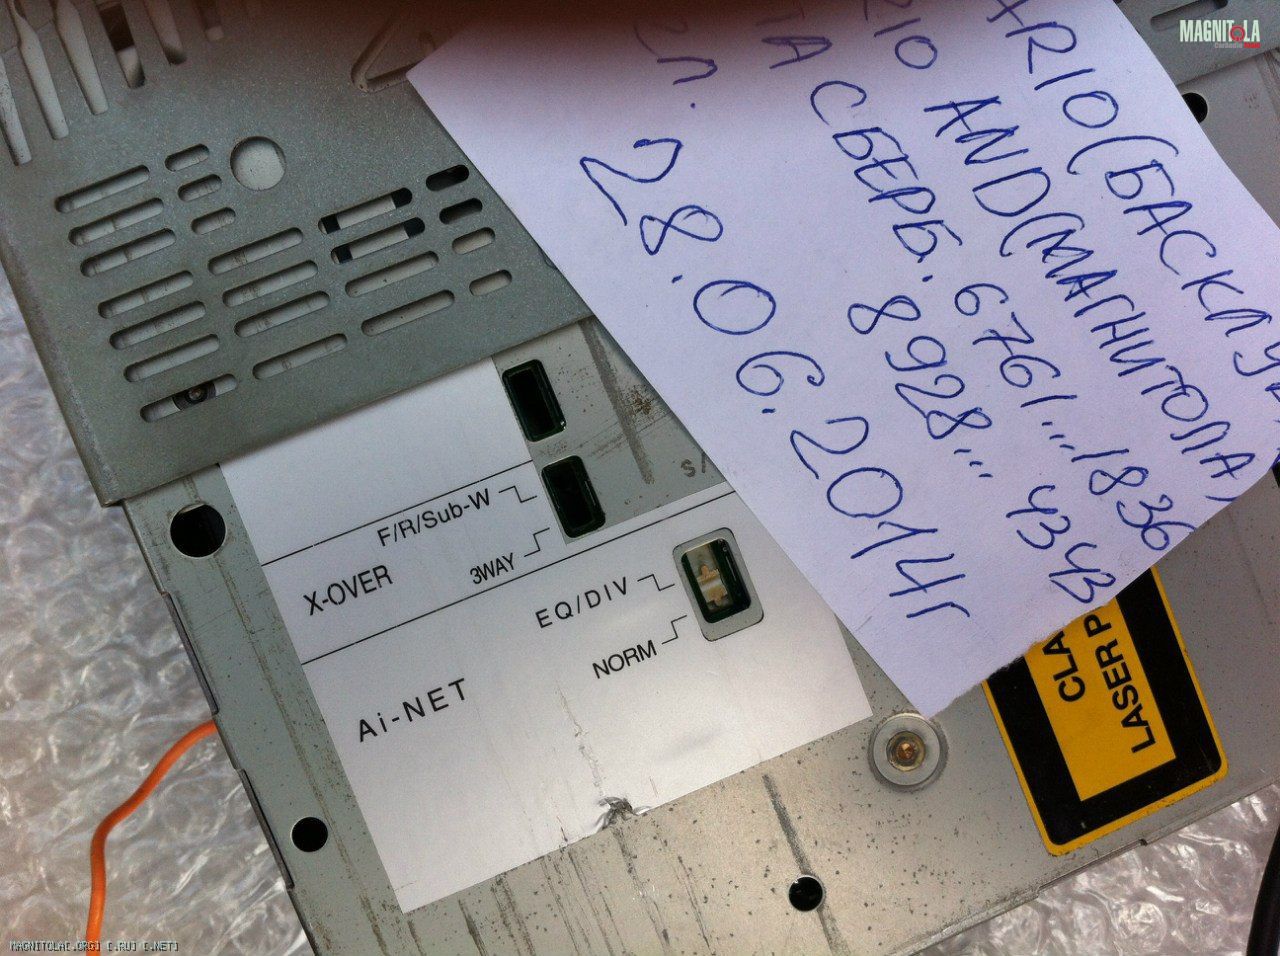 MAGNITOLA
ARIO(БАСКЛУ
RIO AND(МАГНИТОЛА)
ТА СБЕРБ. 6761...1836
ЕЛ. 8928... 4343
28.06.2014г
F/R/Sub-W
X-OVER
3WAY
EQ/DIV
NORM
Ai-NET
S/
CLA
LASER P
MAGNITOLA[.ORG] [.RU] [.NET]